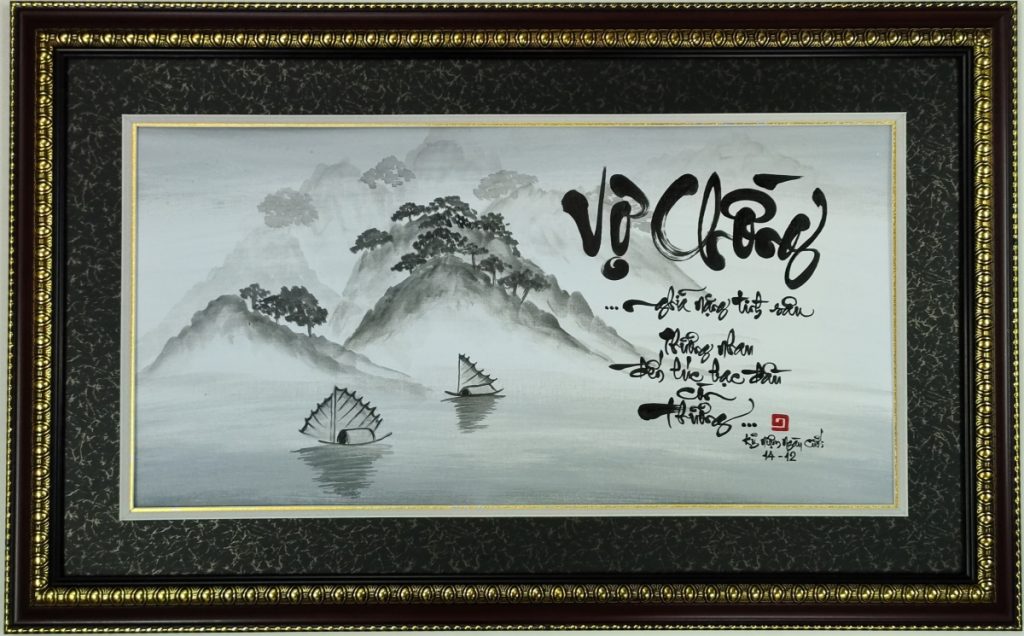 Vợ Chồng
... nghĩa nặng tình sâu
Thương nhau
đến lúc bạc đầu
còn
thương ...
Kỷ niệm ngày cưới:
14 - 12